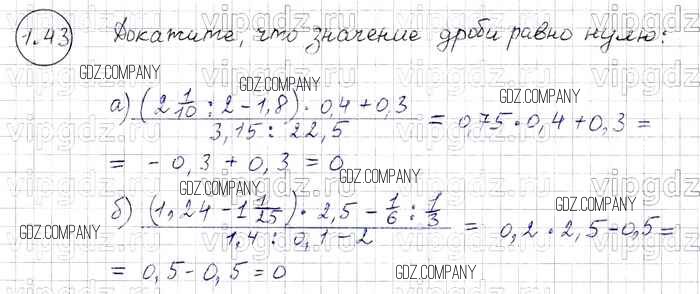 1.43 Докажите, что значение дроби равно нулю:
GDZ.COMPANY
GDZ.COMPANY
GDZ.COMPANY
а) (2 1/10 : 2 - 1,8) · 0,4 + 0,3 / 3,15 : 22,5 = 0,75 · 0,4 + 0,3 =
= - 0,3 + 0,3 = 0
GDZ.COMPANY
GDZ.COMPANY
б) (1,24 - 1 1/25) · 2,5 - 1/6 : 1/3 / 1,4 : 0,1 - 2 = 0,2 · 2,5 - 0,5 =
GDZ.COMPANY
= 0,5 - 0,5 = 0
GDZ.COMPANY